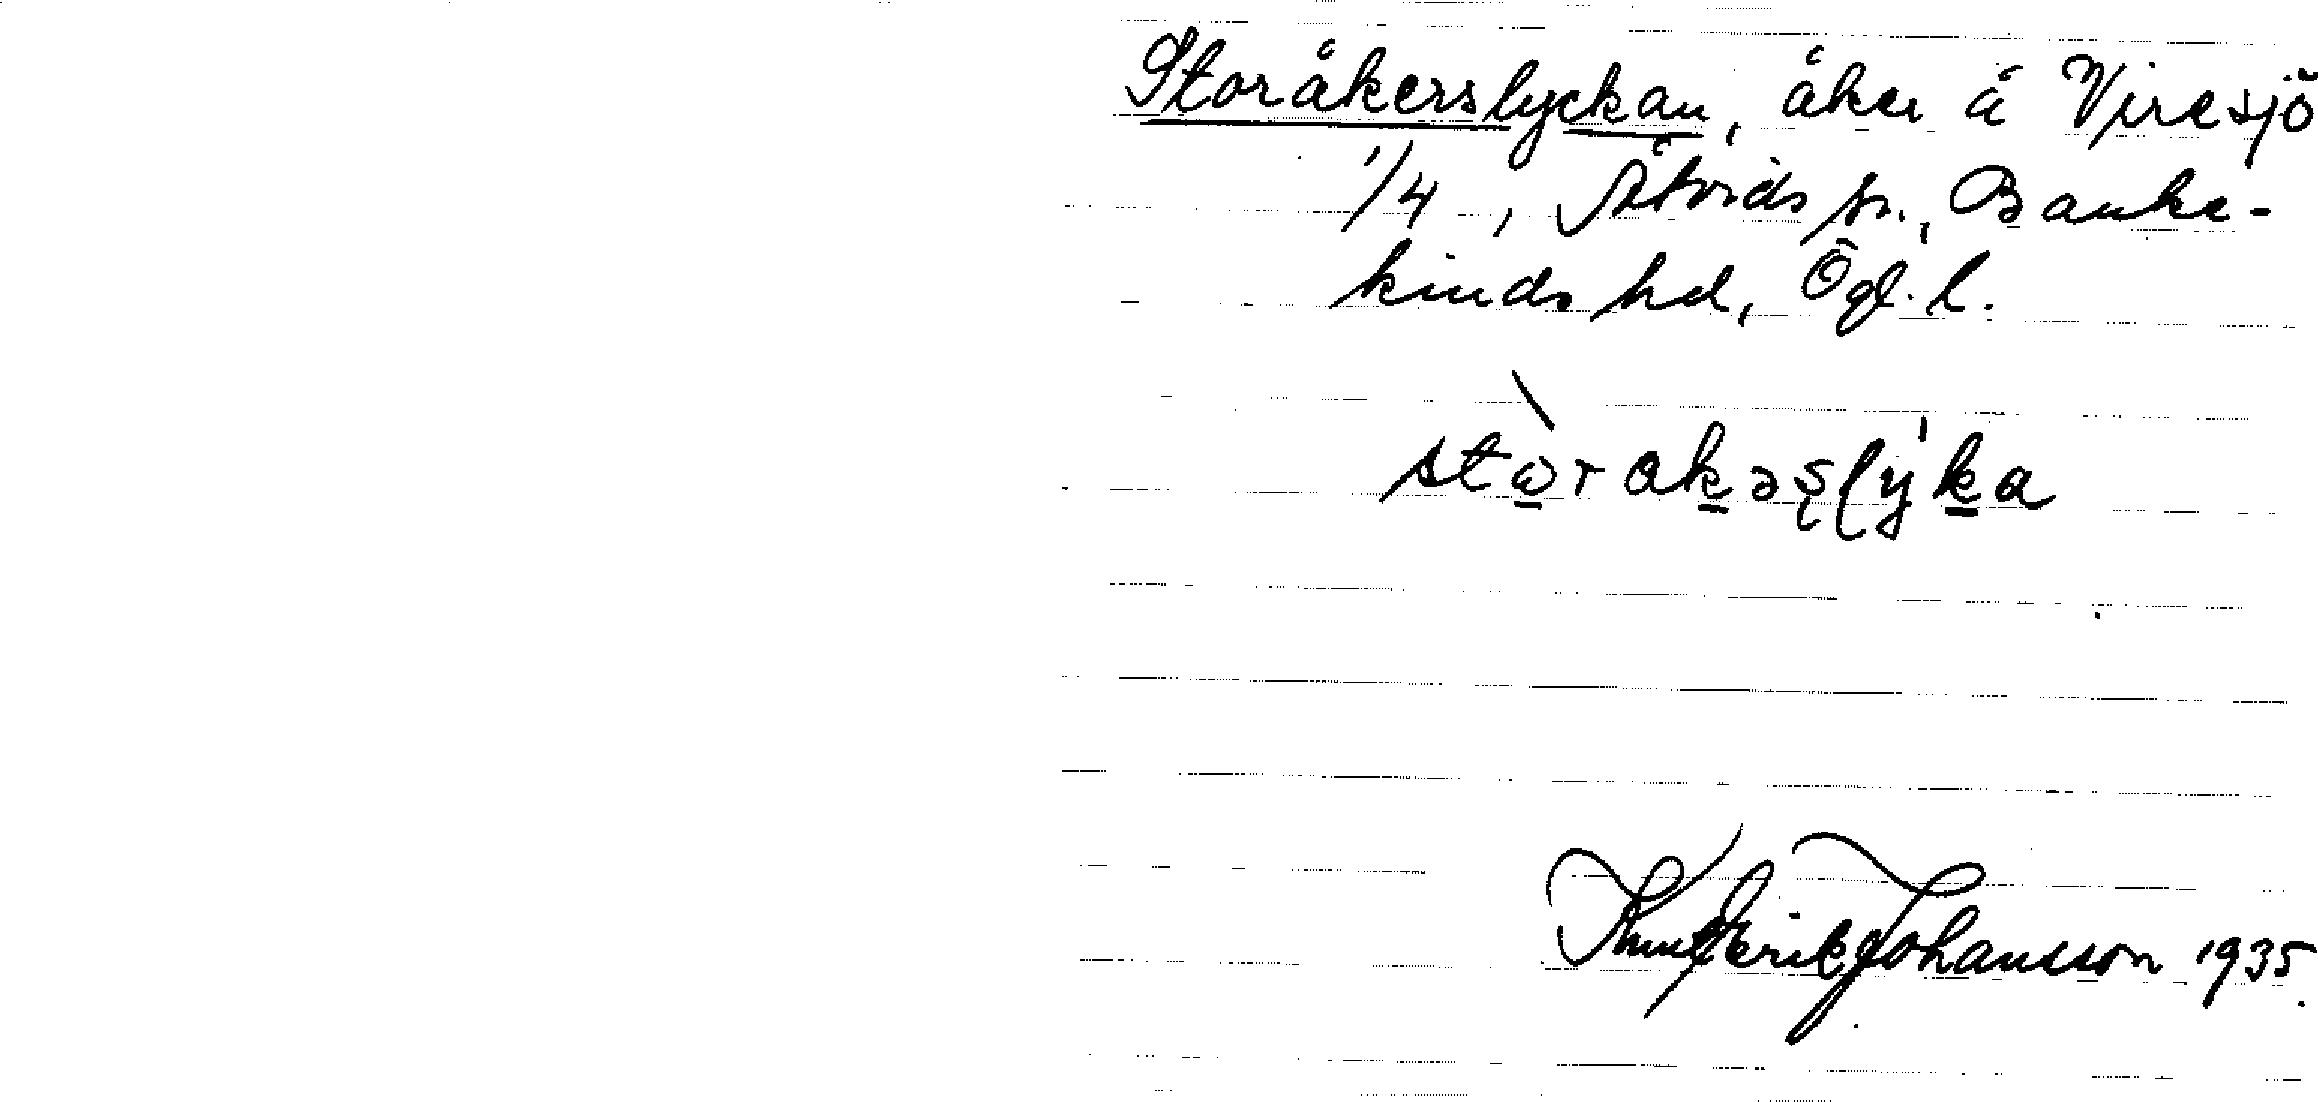 Storåkerslyckan, åker å Viresjö
1/4, Åtvids sn., Banke-
kinds hd, Ögl. l.
stωrakəşlyka
Knut Erik Johansson 1935.